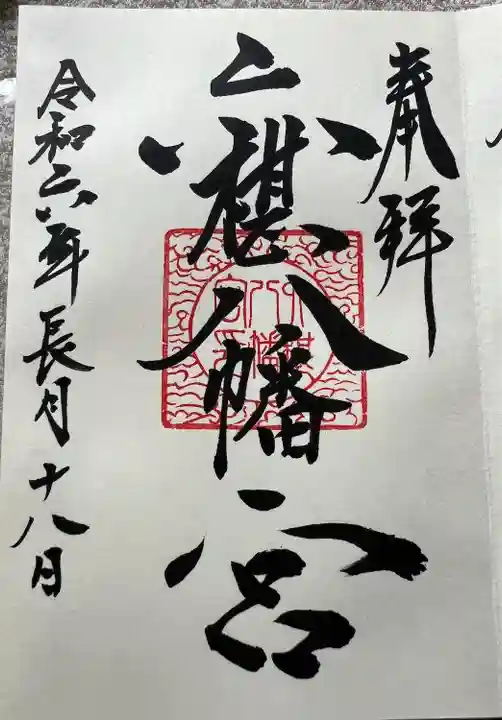 奉拝
八幡宮
令和六年長月十八日